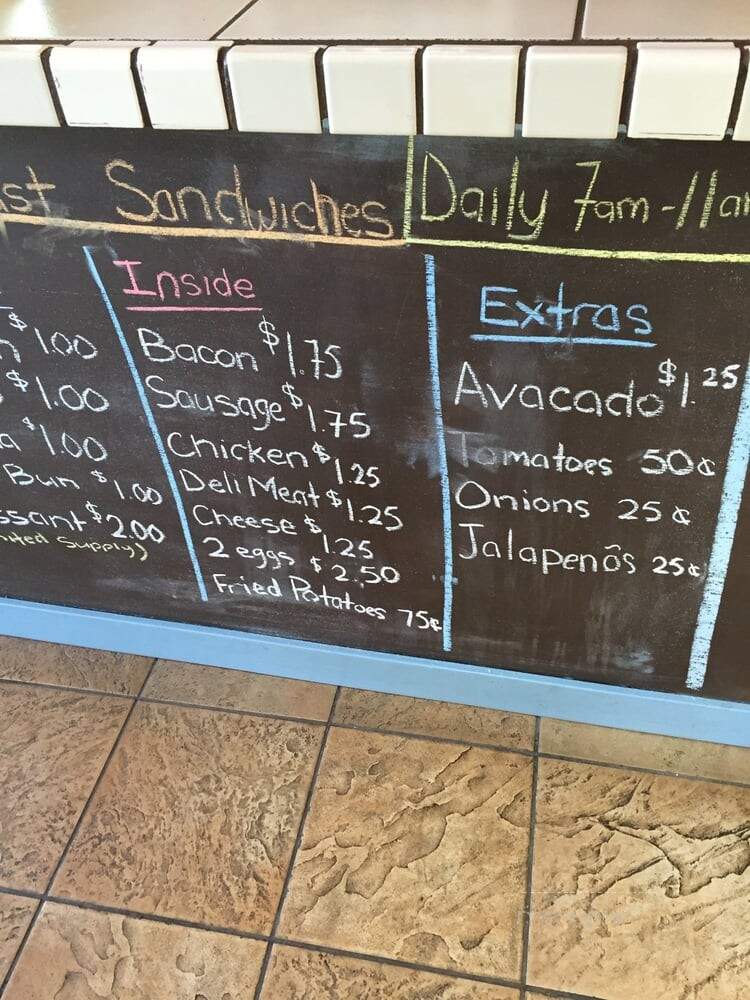 Sandwiches Daily 7am-11am
$1.00
$1.00
$1.00
Bun $1.00
$2.00
Supply)
Inside
Bacon $1.75
Sausage $1.75
Chicken $1.25
Deli Meat $1.25
Cheese $1.25
2 eggs $2.50
Fried Potatoes 75¢
Extras
Avacado $1.25
Tomatoes 50¢
Onions 25¢
Jalapenõs 25¢